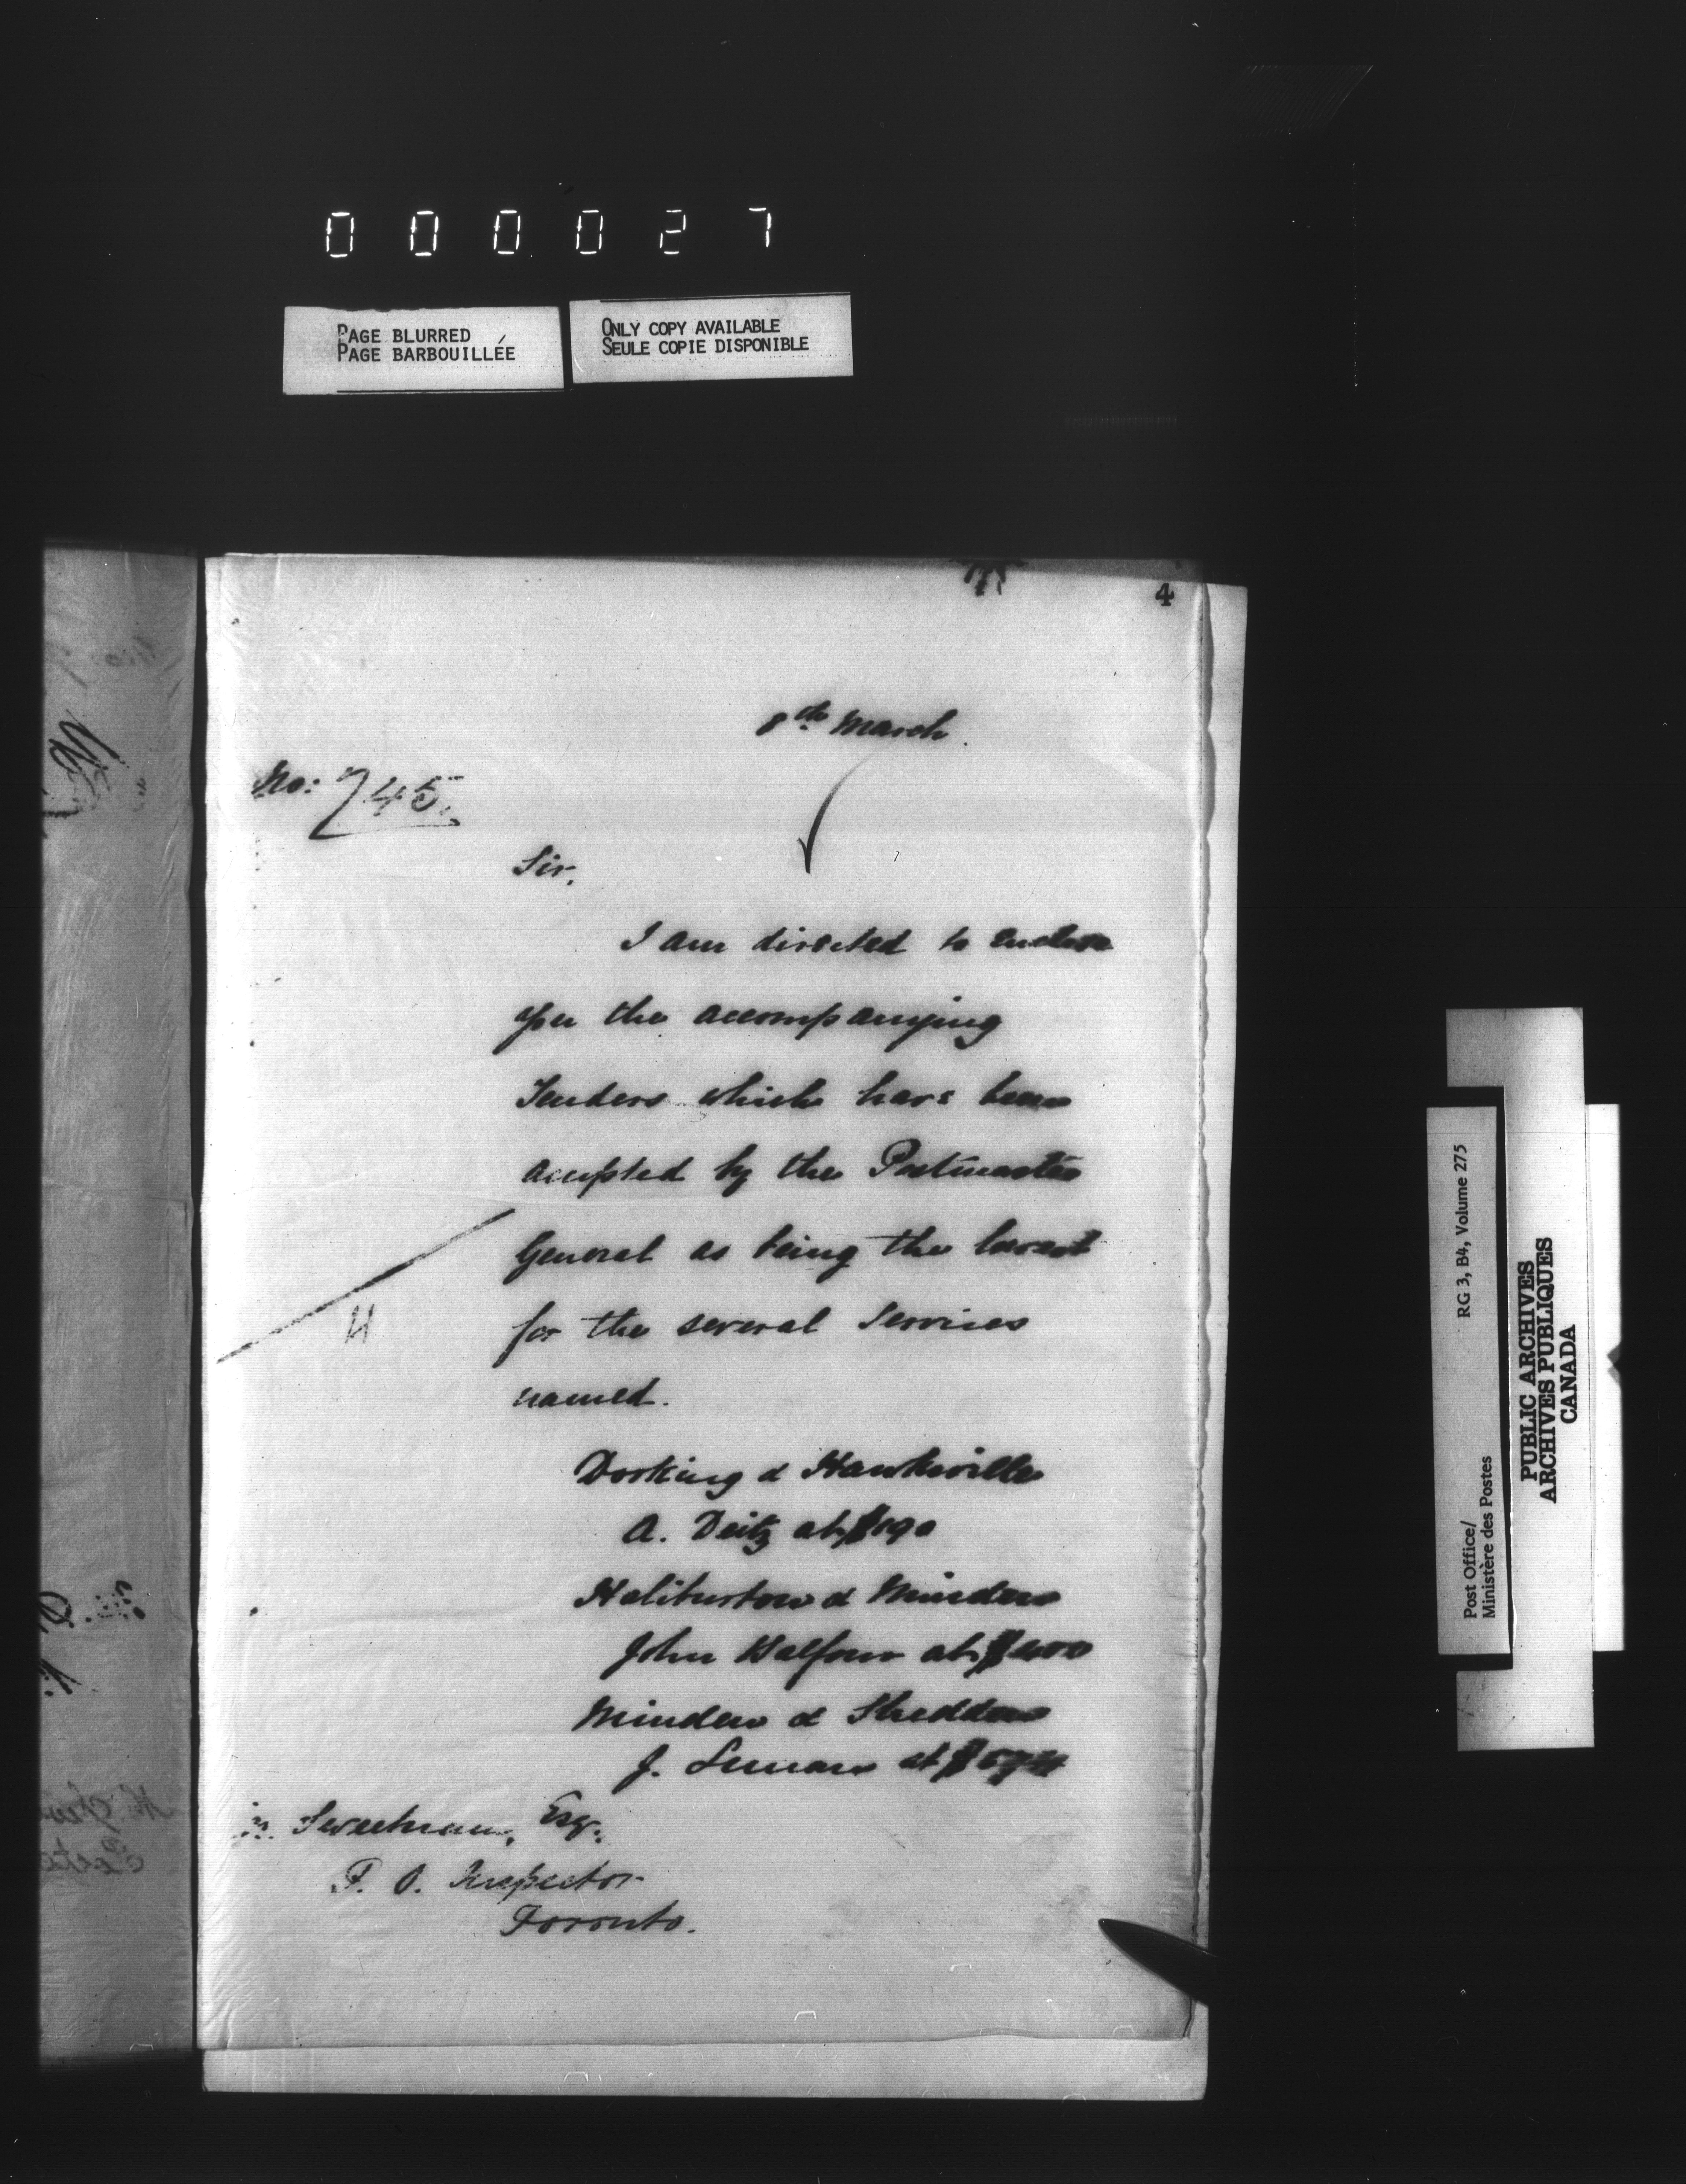 0 0 0 0 2 7
PAGE BLURRED
PAGE BARBOUILLÉE
ONLY COPY AVAILABLE
SEULE COPIE DISPONIBLE
4
8th March.
No: 745.
Sir,
I am directed to enclose
you the accompanying
Tenders which have been
accepted by the Postmaster
General as being the lowest
for the several services
named.
H
Dorking & Hawksville
A. Deitz at $190
Haliburton & Minden
John Balfour at $400
Minden & Shedden
J. at $
Sweetnam, Esqr.
P. O. Inspector
Toronto.
RG 3, B4, Volume 275
Post Office/
Ministère des Postes
PUBLIC ARCHIVES
ARCHIVES PUBLIQUES
CANADA